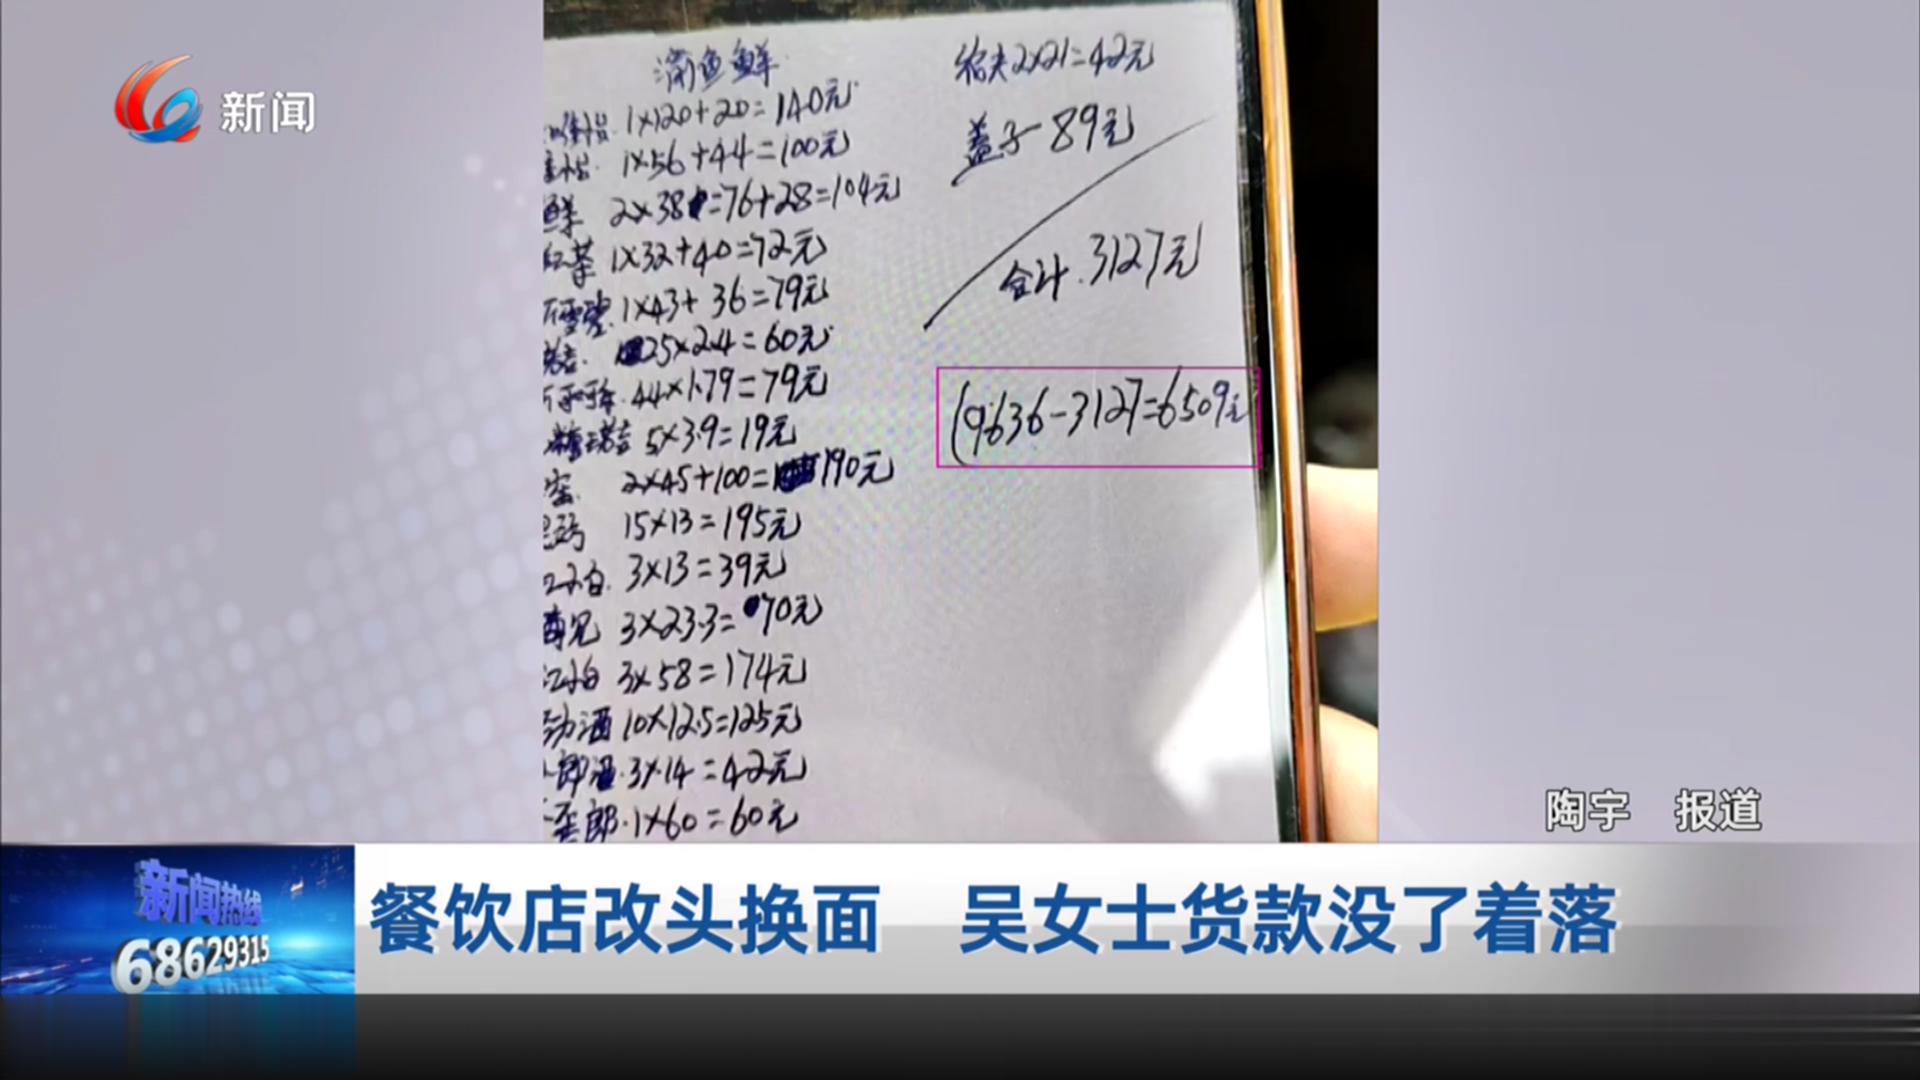 新闻
鱼鲜
1×120+20=140元
1×56+44=100元
鲜 2×38=76+28=104元
红茶 1×32+40=72元
1×43+36=79元
25×2.4=60元
44×1.79=79元
5×3.9=19元
2×45+100=190元
15×13=195元
3×13=39元
3×23.3=70元
江小白 3×58=174元
劲酒 10×12.5=125元
郎酒·3×14=42元
歪郎·1×60=60元
农夫2×21=42元
盖子-89元
合计.3127元
(9636-3127=6509元
陶宇 报道
新闻热线
68629315
餐饮店改头换面 吴女士货款没了着落